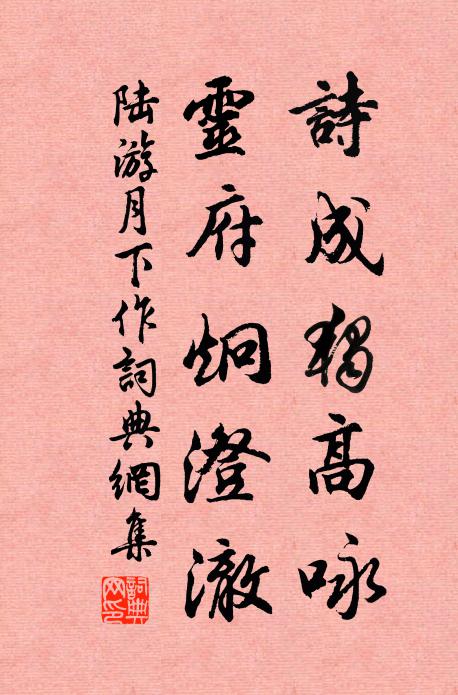 詩成獨高咏
靈府炯澄澈
陸游月下作詞典網集
詞典网印